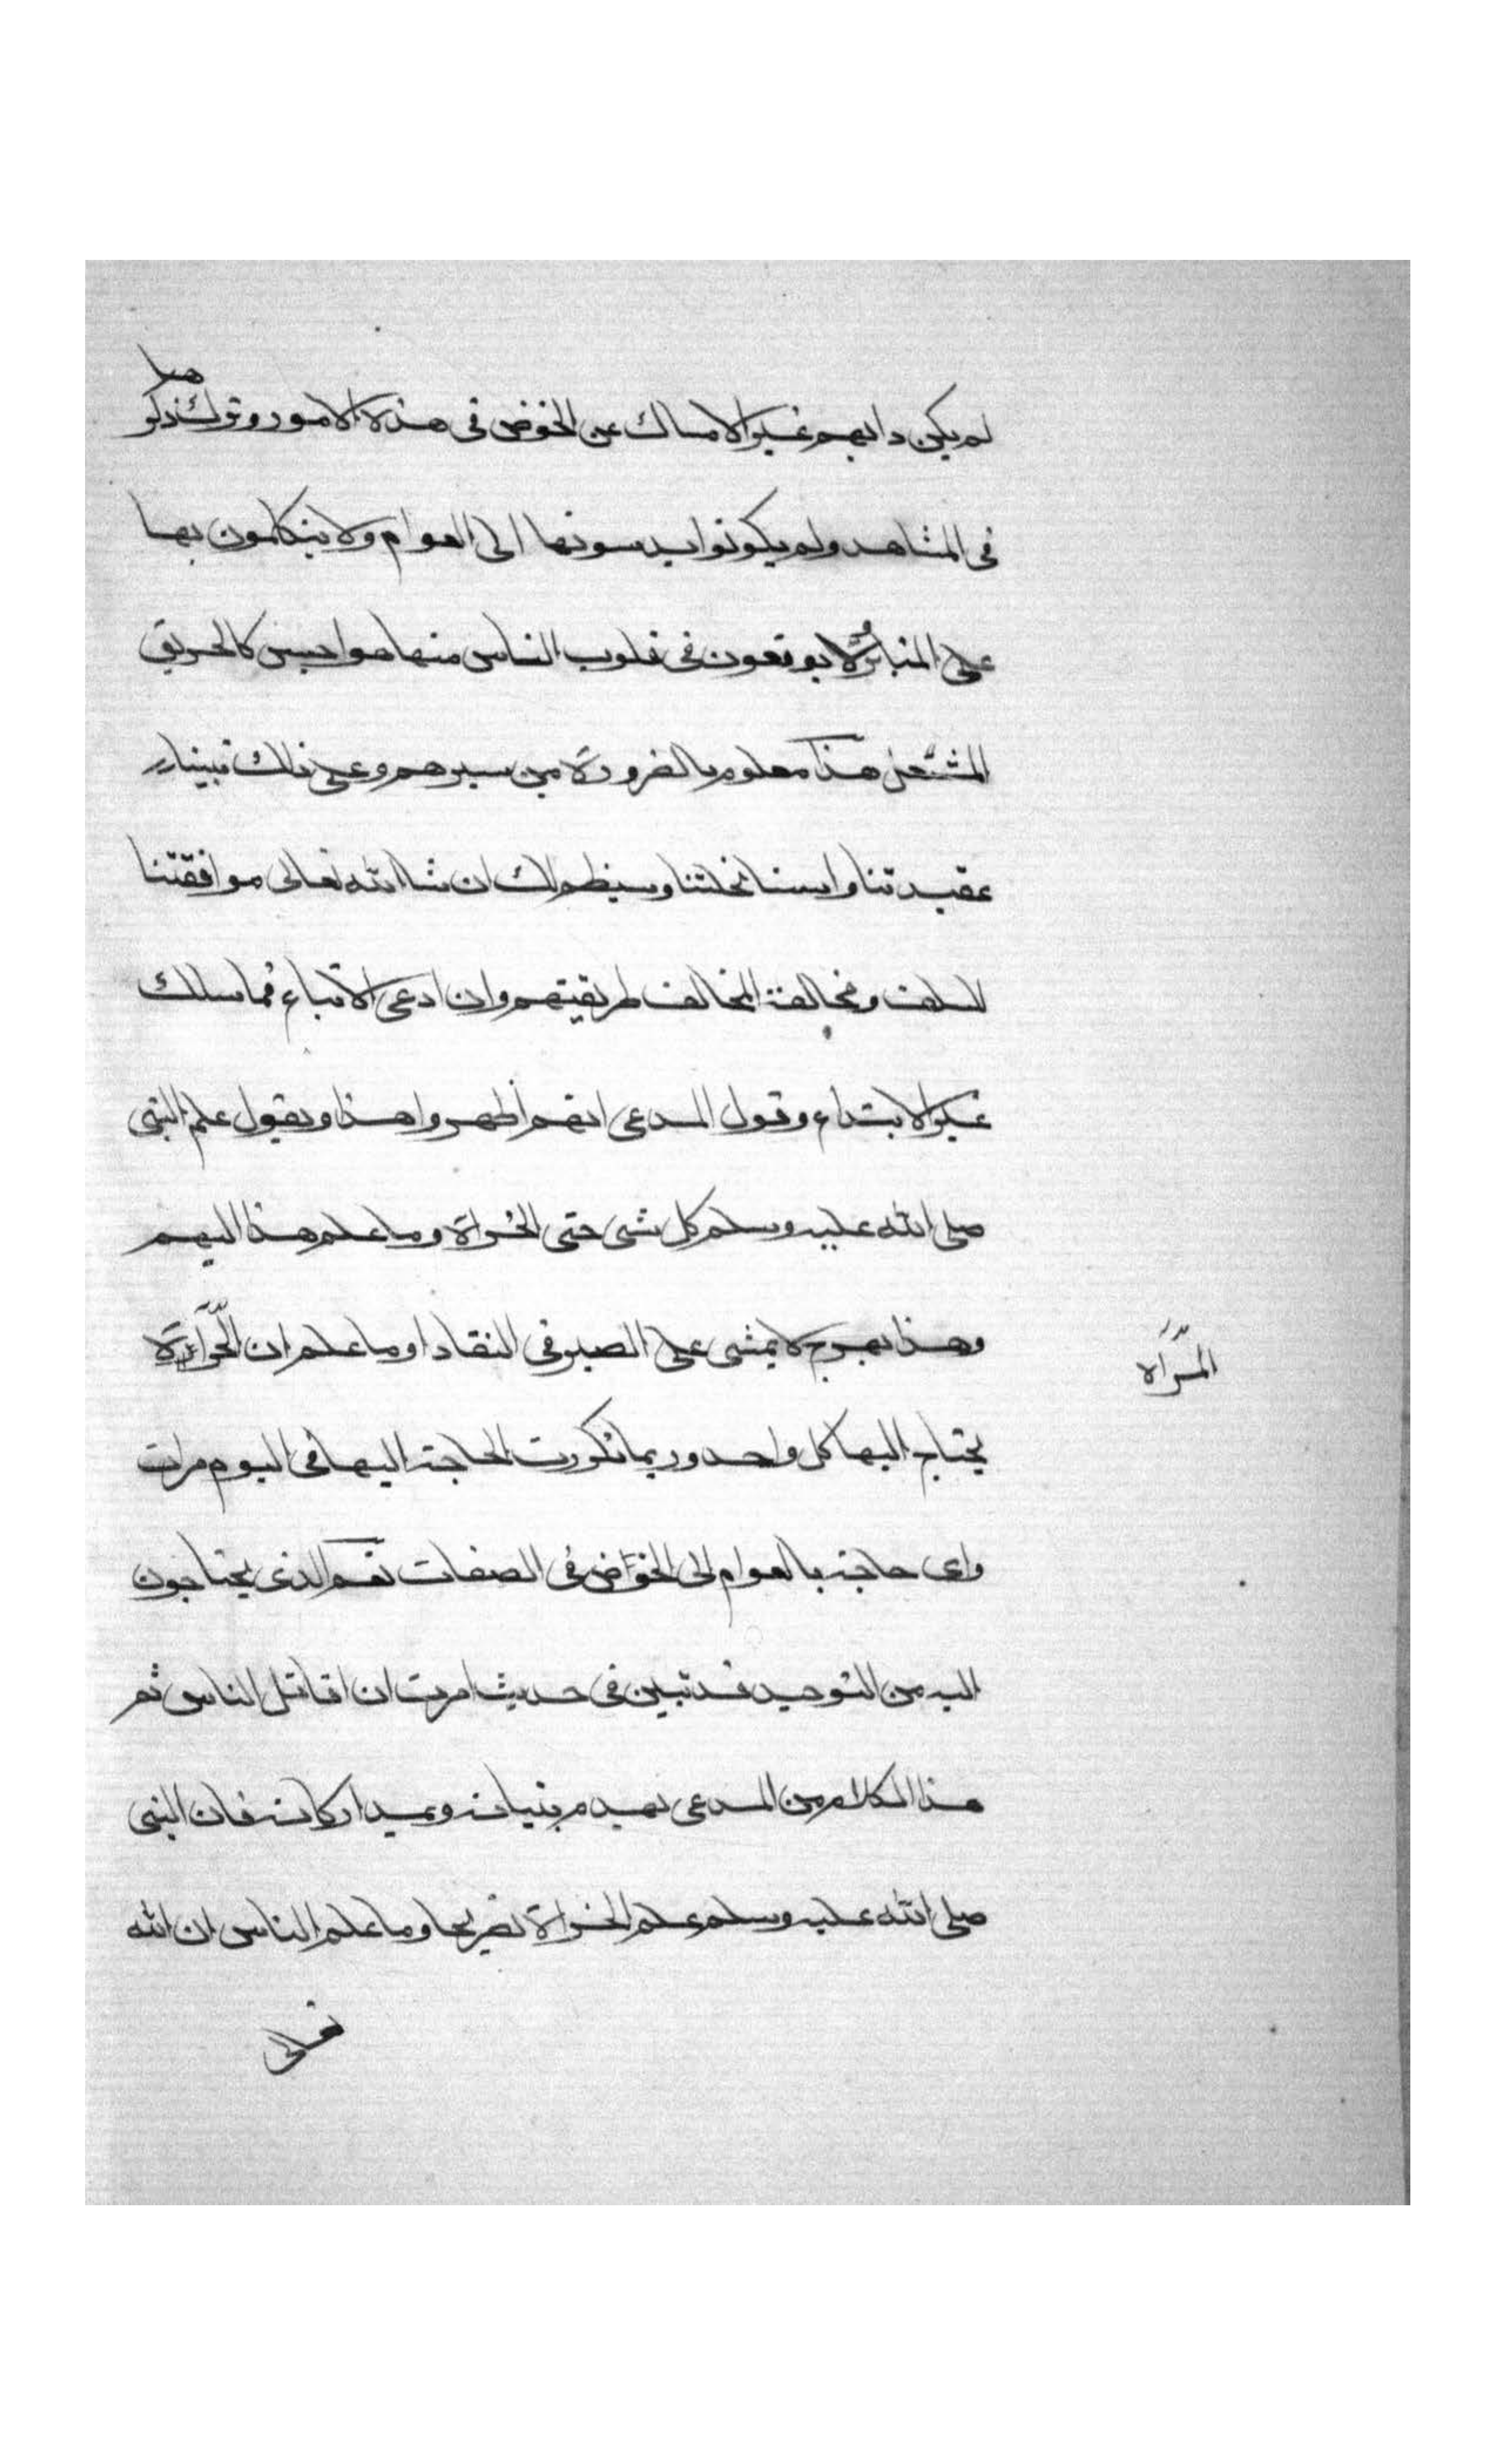 لم يكن دابهم غير الامساك عن الخوض فى هذه الامور وترك ذكرها
فى المشاهد ولم يكونوا يدسونها الى العوام ولا يتكلمون بها
على المنابر ولا يوقعون فى قلوب الناس منها هواجس كالحريق
المشعل هذا معلوم بالضرورة من سيرهم وعلى ذلك بنينا
عقيدتنا واسسنا نحلتنا وسيظهر لك ان شا الله تعالى موافقتنا
للسلف ومخالفة المخالف طريقتهم وان ادعى الاتباع فما سلك
غير الابتداع وقول المدعى انهم اظهروا هذا ويقول علم النبى
صلى الله عليه وسلم كل شى حتى الخراة وما علم هذا المهم
وهذا بهرج لا يمشى على الصيرفى النقاد او ما علم ان الخراة
المراة
يحتاج اليها كل واحد وربما تكررت الحاجة اليها فى اليوم مرات
واى حاجة بالعوام الى الخوض فى الصفات نعم الذى يحتاجون
اليه من التوحيد قد تبين فى حديث امرت ان اقاتل الناس ثم
هذا الكلام من المدعى يهدم بنيانه ويهد اركانه فان النبى
صلى الله عليه وسلم علم الخراة تصريحا وما علم الناس ان الله
تعالى